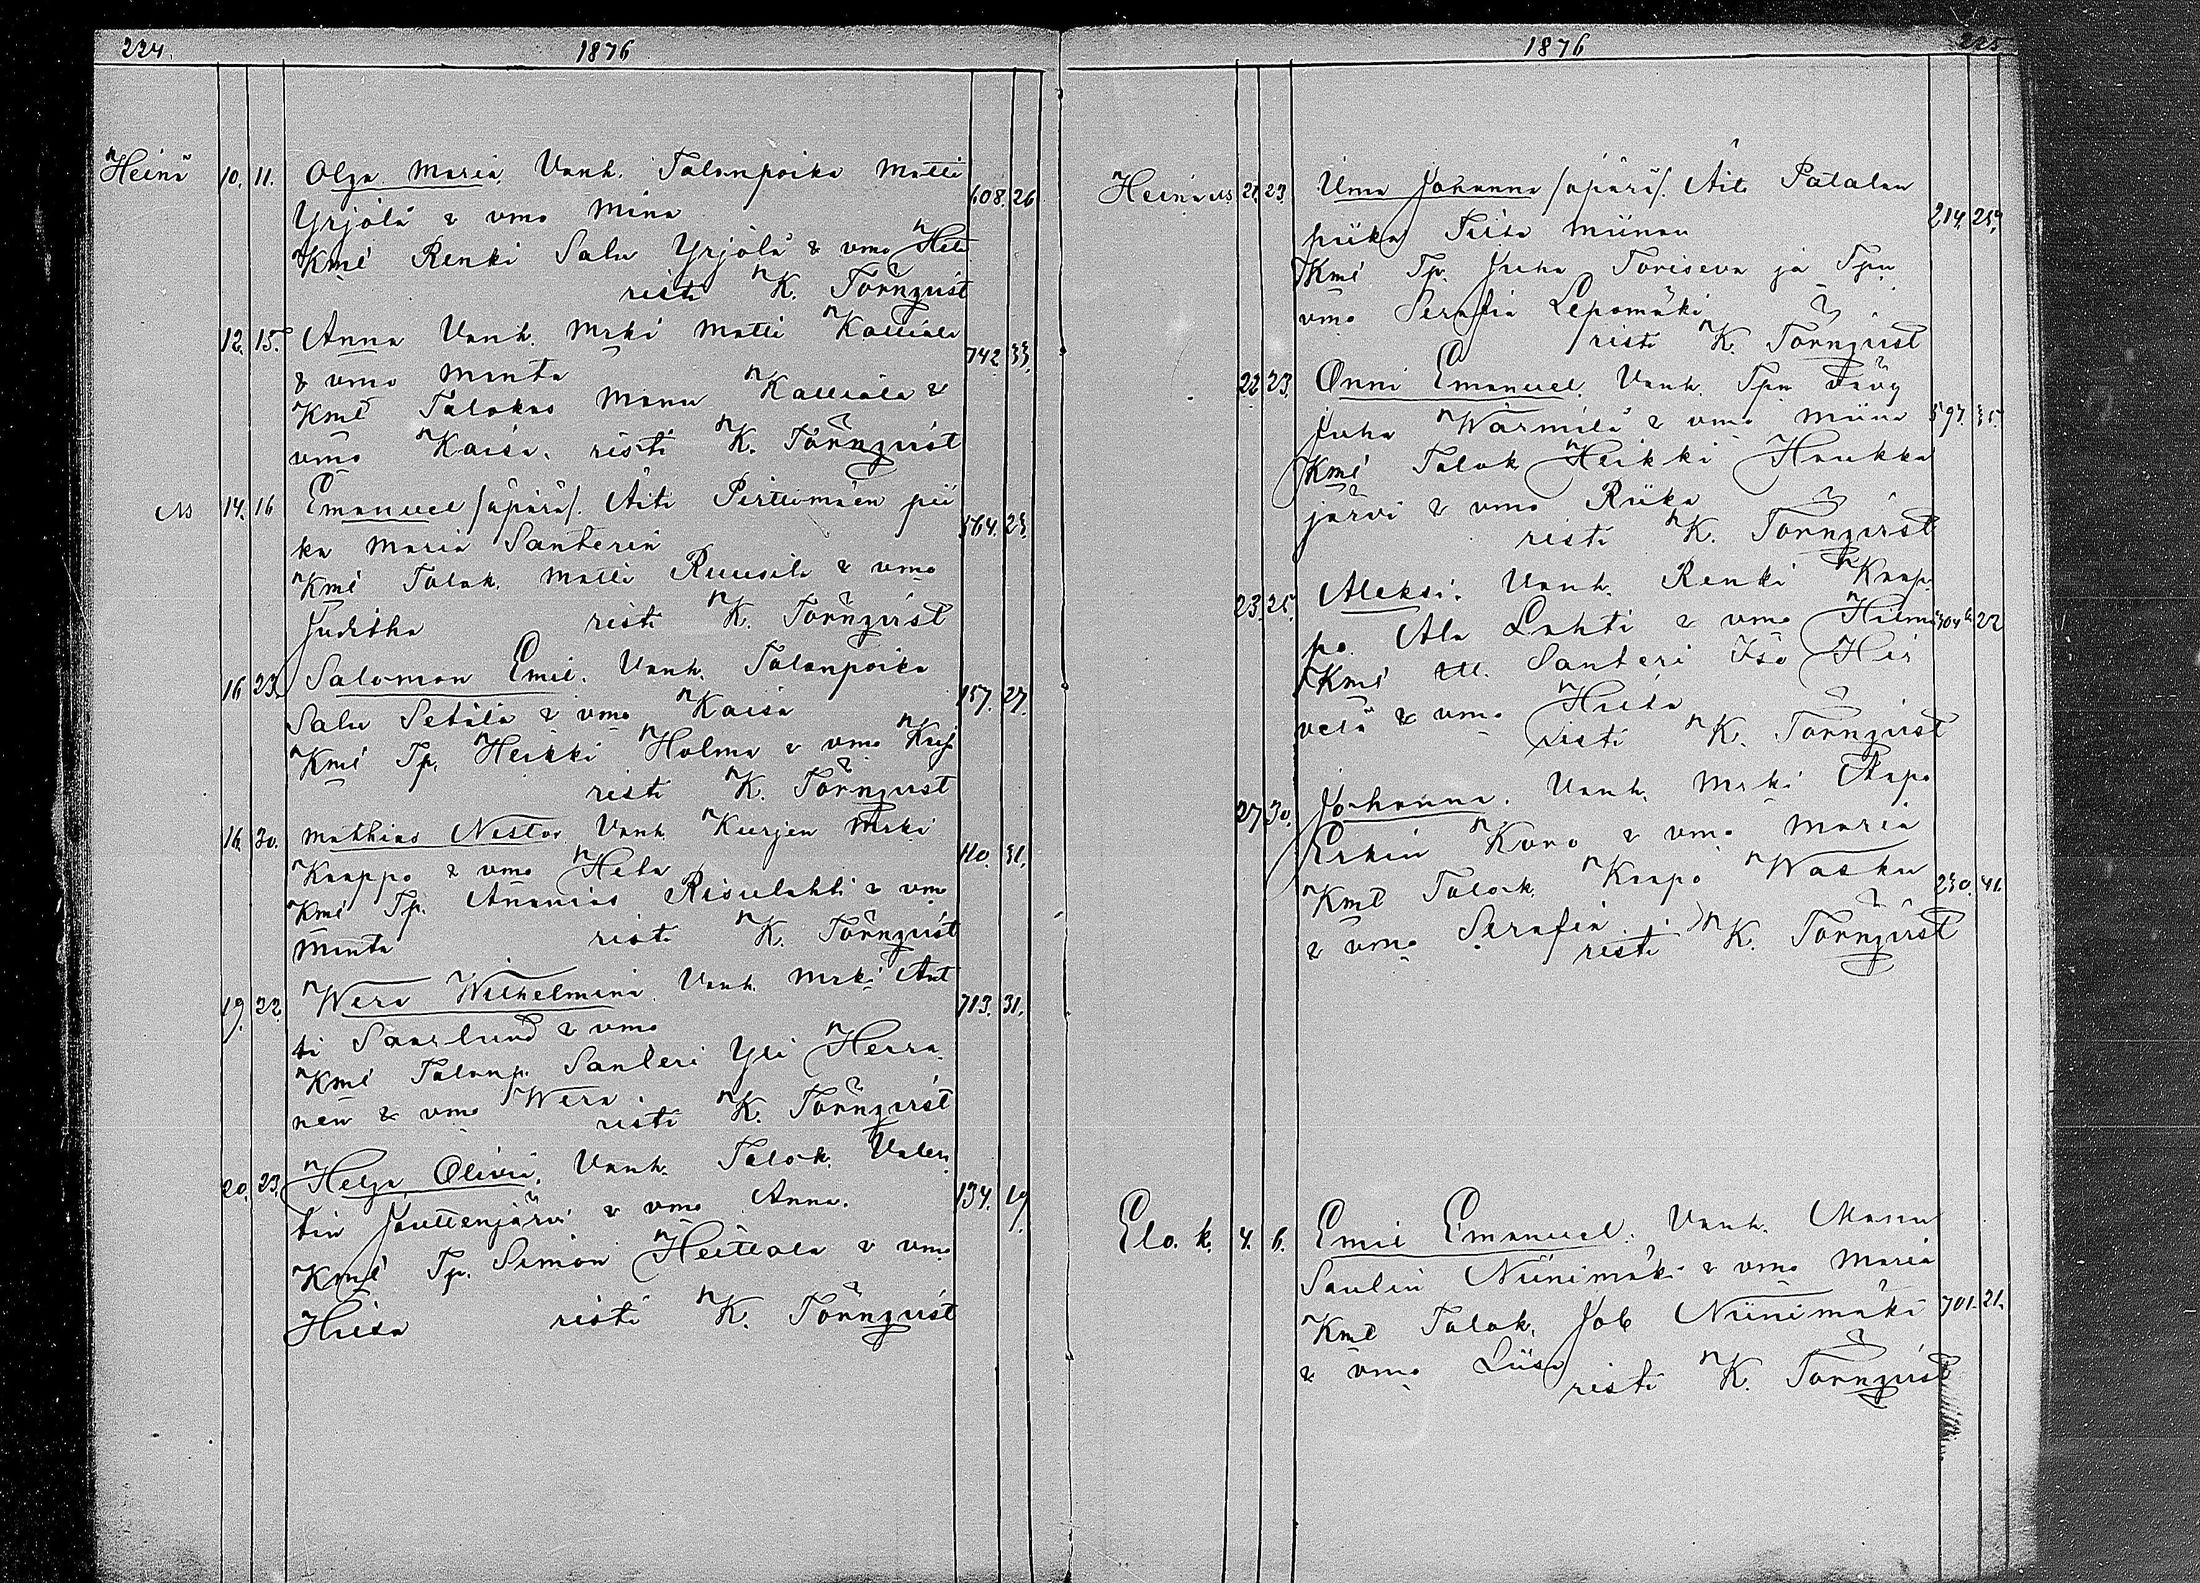 224.
1876
Heinä 10. 11. Olga Maria, Vanh. Talonpoika Matti
Yrjölä & vmo Mina 608. 26
Kmt Renki Salu Yrjölä & vmo Heta
risti K. Törnqvist
12. 15. Anna Vanh. Mrki Matti Kalliala
& vmo Manta 742 33.
Kmt Talokas Manu Kalliala &
vmo Kaisa. risti K. Törnqvist
14. 16 Emanuel /äpärä/. Äiti Pirttimäen pii
ka Maria Santerin 564. 23.
Kmt Talok. Matti Ruusila & vmo
Juditha risti K. Törnqvist
16 23. Salomon Emil. Vanh. Talonpoika
Salu Setälä & vmo Kaisa 157. 27.
Kmt Tp. Heikki Holma & vmo
risti K. Törnqvist
16. 30. Mathias Nestor Vanh. Kurjen Mrki
Kaappo & vmo Heta 110. 31.
Kmt Tp. Ananias Risulahti & vmo
Manta risti K. Törnqvist
19. 22. Wera Wilhelmina. Vanh. Mrki Ant
ti Saarlund & vmo 713. 31.
Kmt Talonp. Santeri Yli Herra
nen & vmo Wera. risti K. Törnqvist
20. 23. Helga Olivia, Vanh. Talok. Valen
tin Jouttenjärvi & vmo Anna. 134. 19.
Kmt Tp. Simon Heittola & vmo
Hiisa risti K. Törnqvist
1876
225
Heinä 21. 23. Uma Johanna /äpärä/. Äiti Patalan
piika Tiisa Miinan 214. 25.
Kmt Tp. Juha Toriseva ja Tpn
vmo Serafia Lepomäki
risti K. Törnqvist
22 23. Onni Emanuel. Vanh. Tpn vävy
Juha Wärmilä & vmo Miina 597. 35.
Kmt Talok Heikki Haukka
järvi & vmo Riika
risti K. Törnqvist
23. 25. Aleksi. Vanh. Renki Kaap
po Ala Lahti & vmo 22
Kmt Santeri Iso Hir
velä & vmo Hiisa
risti K. Törnqvist
27 30. Johanna. Vanh. Mrki Aapo
Erkin Koro & vmo Maria
Kmt Talok. Kaapo Wasku 230. 41.
& vmo Serafia
risti K. Törnqvist
Elo. k. 4. 6. Emil Emanuel. Vanh. Manu
Saulin Niinimäki & vmo Maria
Kmt Talok. Job Niinimäki 701. 21.
& vmo Liisa
risti K. Törnqvist